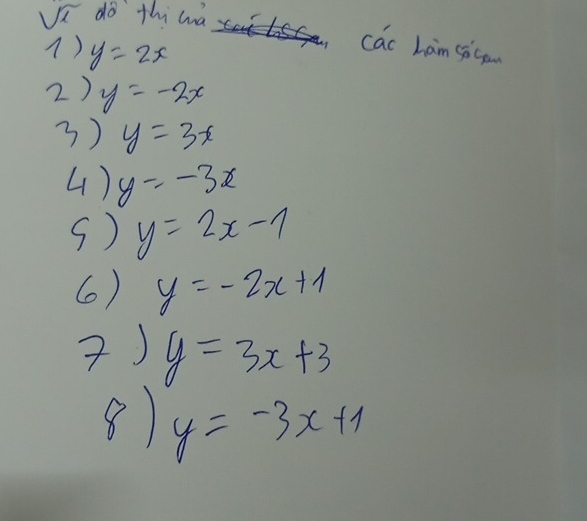 Vẽ đồ thị của các hàm số sau
1) y = 2x
2) y = -2x
3) y = 3x
4) y = -3x
5) y = 2x - 1
6) y = -2x + 1
7) y = 3x + 3
8) y = -3x + 1